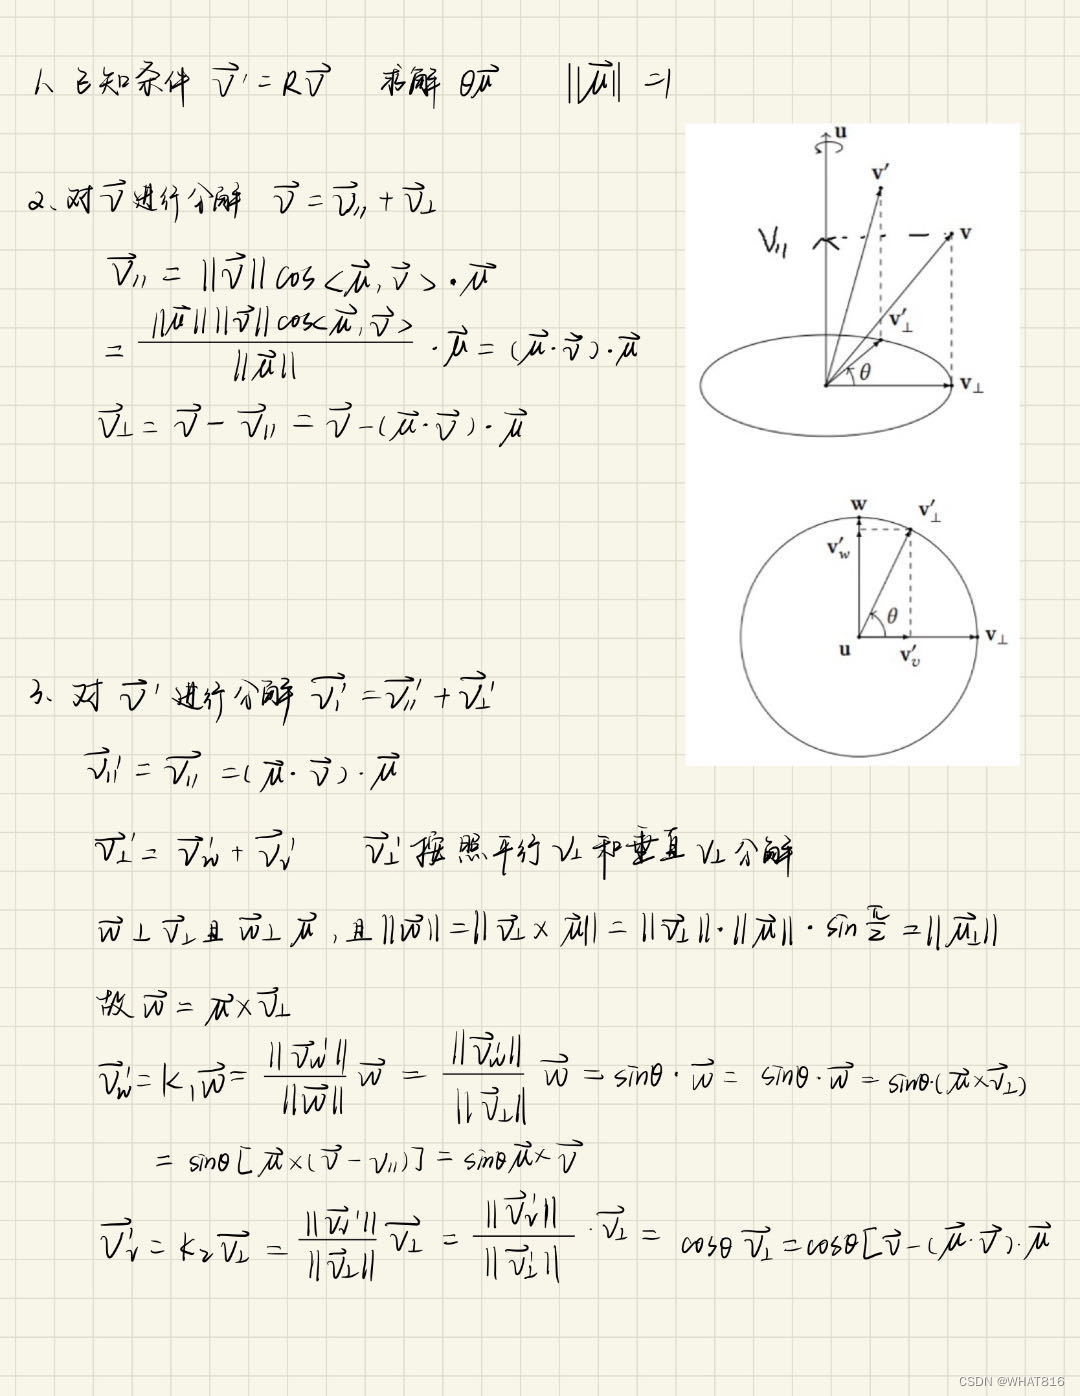 1、已知条件 $\vec{v}' = R\vec{v}$ 求解 $\theta\vec{\mu}$ $||\vec{\mu}|| = 1$
2、对 $\vec{v}$ 进行分解 $\vec{v} = \vec{v}_{//} + \vec{v}_\perp$
$\vec{v}_{//} = ||\vec{v}|| \cos<\vec{\mu}, \vec{v}> \cdot \vec{\mu}$
$= \frac{||\vec{\mu}|| ||\vec{v}|| \cos<\vec{\mu}, \vec{v}>}{||\vec{\mu}||} \cdot \vec{\mu} = (\vec{\mu} \cdot \vec{v}) \cdot \vec{\mu}$
$\vec{v}_\perp = \vec{v} - \vec{v}_{//} = \vec{v} - (\vec{\mu} \cdot \vec{v}) \cdot \vec{\mu}$
u
v′
V//
v
v′⊥
θ
v⊥
w
v′⊥
v′w
θ
u
v′v
v⊥
3、对 $\vec{v}'$ 进行分解 $\vec{v}_1' = \vec{v}_{//}' + \vec{v}_\perp'$
$\vec{v}_{//}' = \vec{v}_{//} = (\vec{\mu} \cdot \vec{v}) \cdot \vec{\mu}$
$\vec{v}_\perp' = \vec{v}_w' + \vec{v}_v'$ $\vec{v}_\perp'$ 按照平行 $v_\perp$ 和垂直 $v_\perp$ 分解
$\vec{w} \perp \vec{v}_\perp$ 且 $\vec{w} \perp \vec{\mu}$ , 且 $||\vec{w}|| = ||\vec{v}_\perp \times \vec{\mu}|| = ||\vec{v}_\perp|| \cdot ||\vec{\mu}|| \cdot \sin\frac{\pi}{2} = ||\vec{\mu}_\perp||$
故 $\vec{w} = \vec{\mu} \times \vec{v}_\perp$
$\vec{v}_w' = k_1\vec{w} = \frac{||\vec{v}_w'||}{||\vec{w}||}\vec{w} = \frac{||\vec{v}_w'||}{||\vec{v}_\perp||}\vec{w} = \sin\theta \cdot \vec{w} = \sin\theta \cdot \vec{w} = \sin\theta \cdot (\vec{\mu} \times \vec{v}_\perp)$
$= \sin\theta[\vec{\mu} \times (\vec{v} - v_{//})] = \sin\theta\vec{\mu} \times \vec{v}$
$\vec{v}_v' = k_2\vec{v}_\perp = \frac{||\vec{v}_v'||}{||\vec{v}_\perp||}\vec{v}_\perp = \frac{||\vec{v}_v'||}{||\vec{v}_\perp'||} \cdot \vec{v}_\perp = \cos\theta\vec{v}_\perp = \cos\theta[\vec{v} - (\vec{\mu} \cdot \vec{v}) \cdot \vec{\mu}$
CSDN @WHAT816